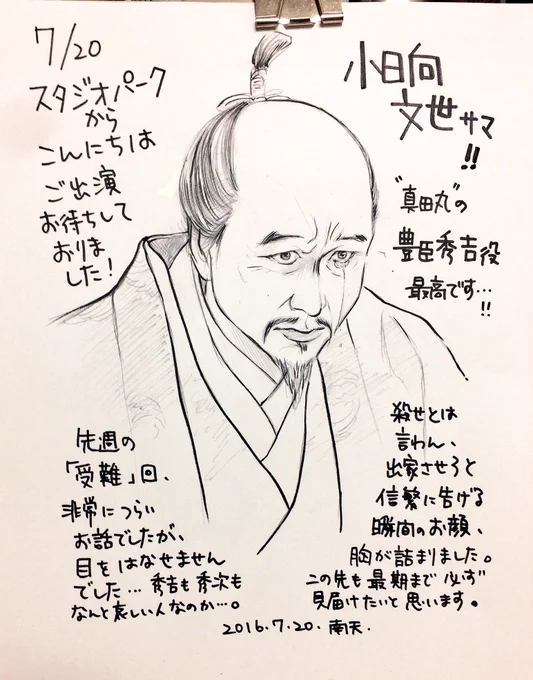 7/20
スタジオパーク
から
こんにちは
ご出演
お待ちして
おりま
した!
小日向
文世サマ
!!
"真田丸"の
豊臣秀吉役
最高です…
!!
先週の
「受難」回、
非常につらい
お話でしたが、
目をはなせません
でした… 秀吉も秀次も
なんと哀しい人なのか…。
殺せとは
言わん、
出家させろと
信繁に告げる
瞬間のお顔、
胸が詰まりました。
この先も最期まで必ず
見届けたいと思います。
2016.7.20. 南天.